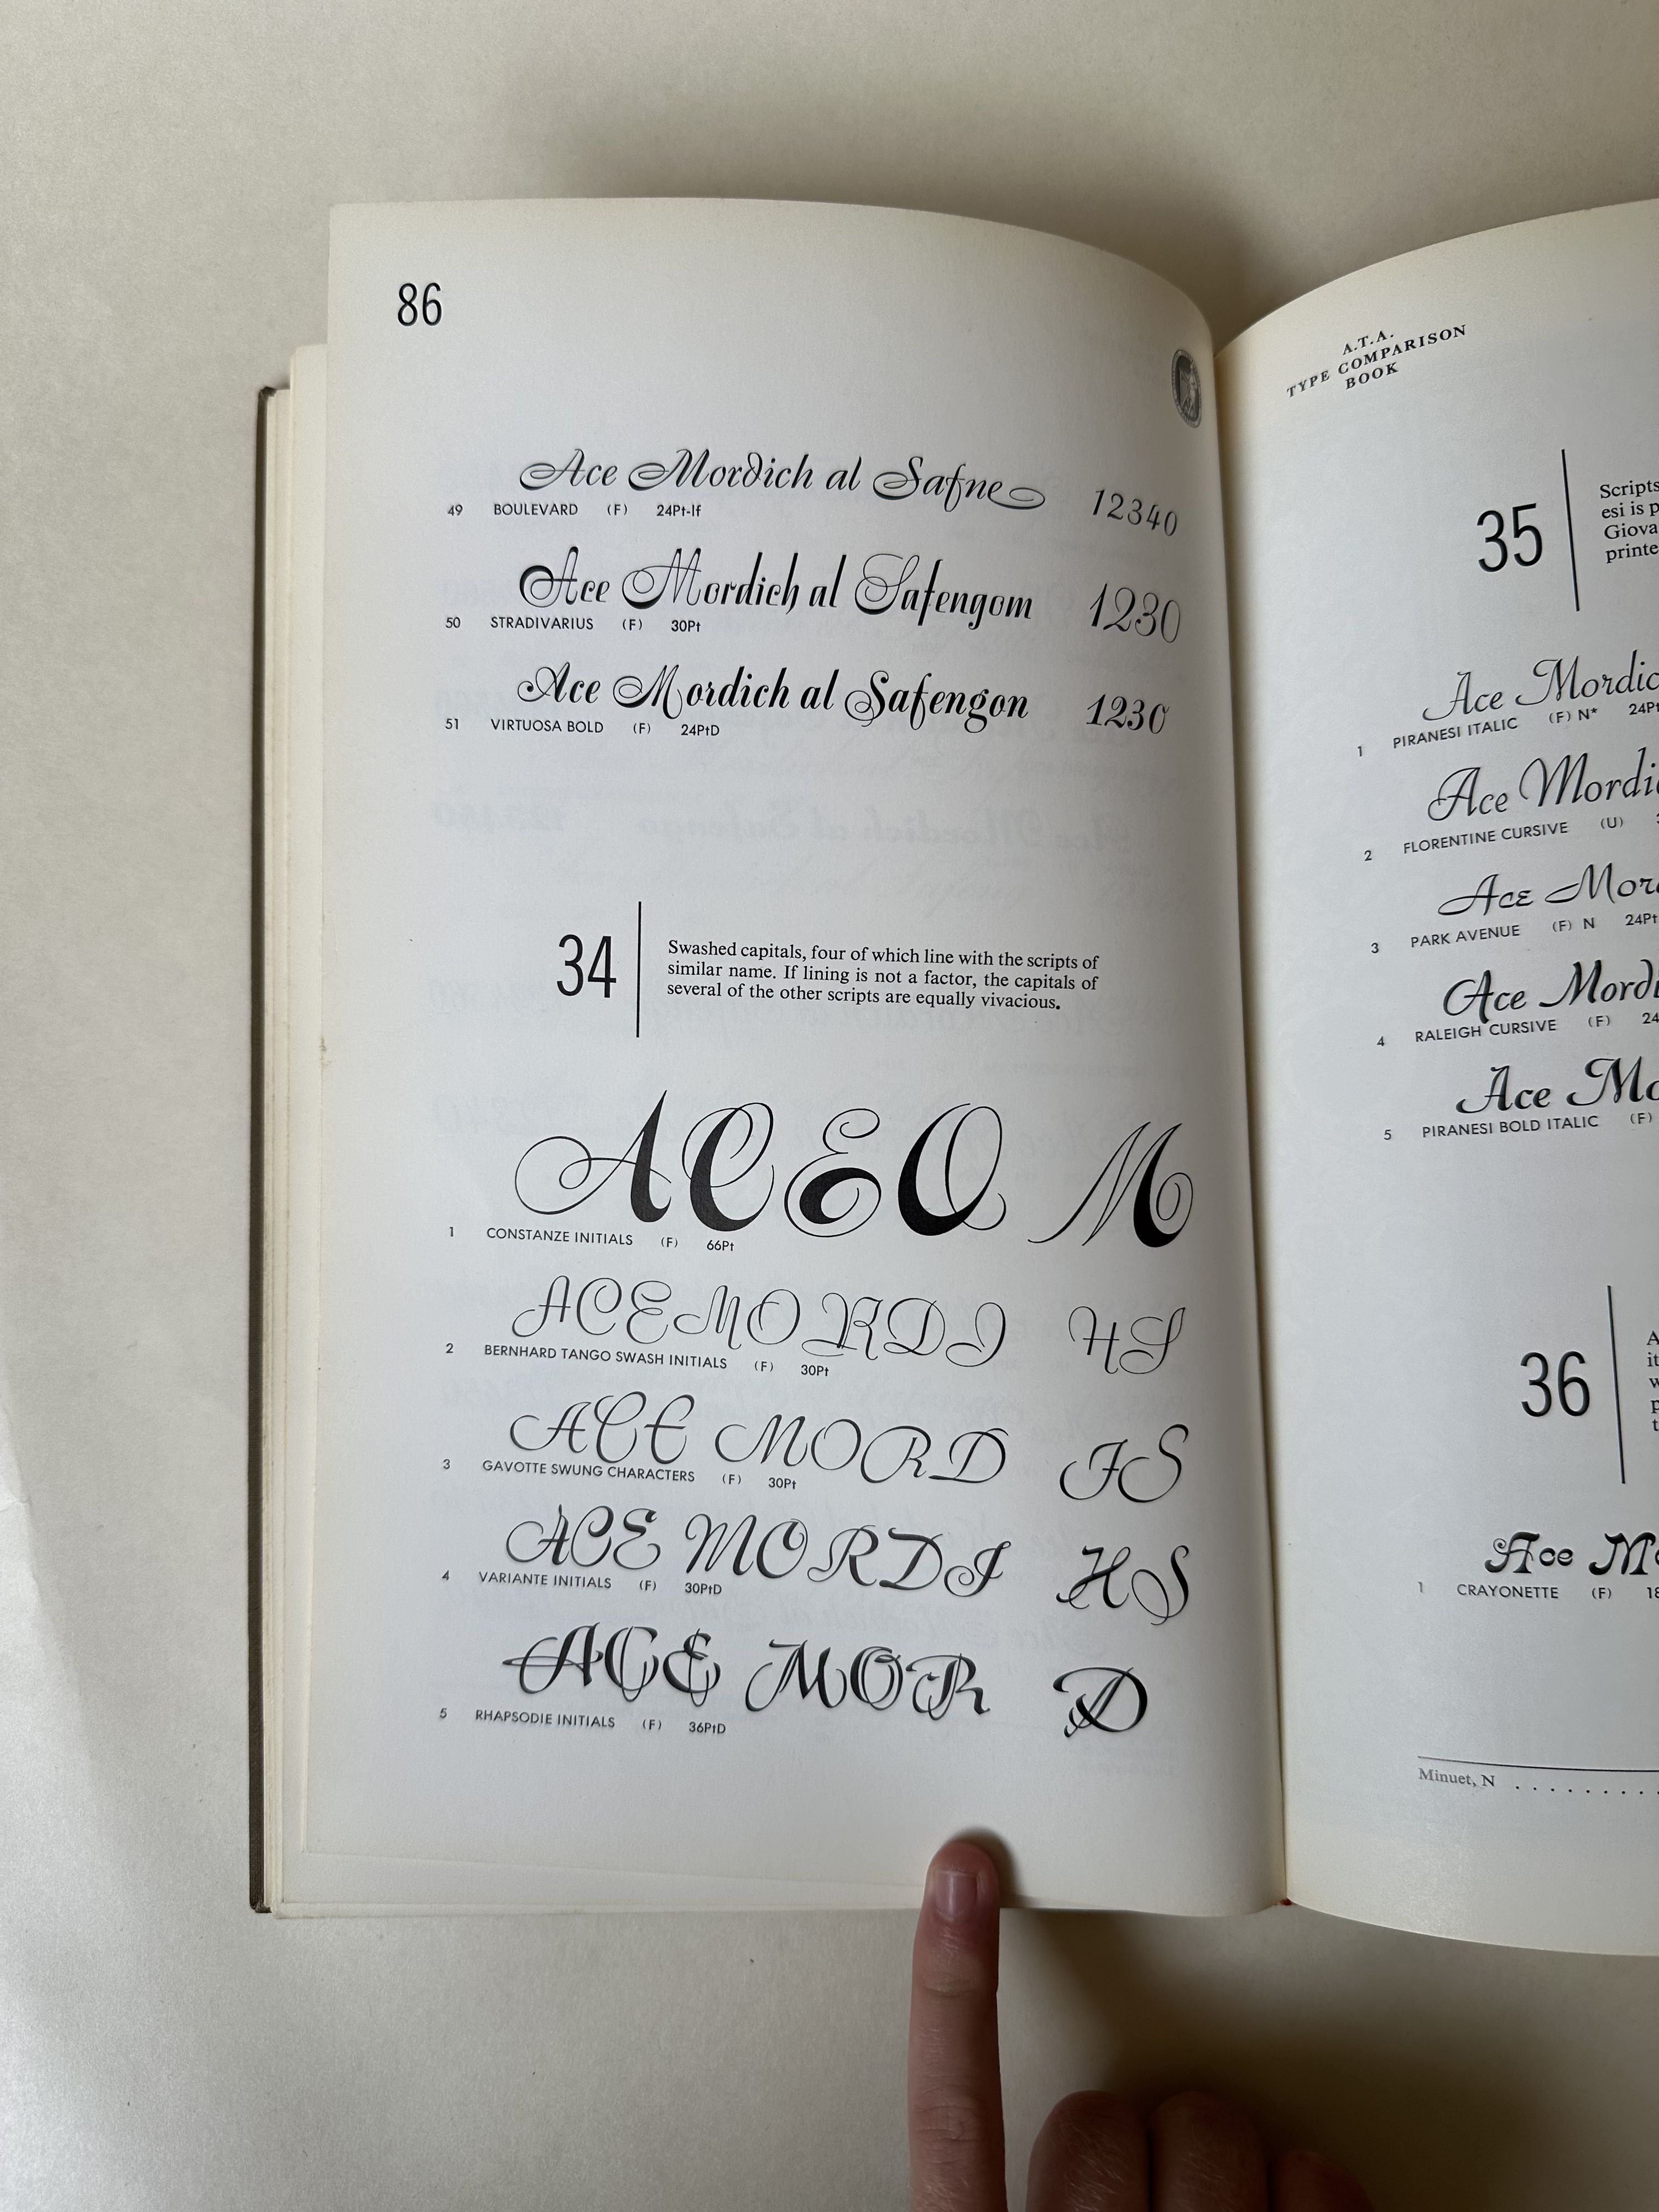 86
Ace Mordich al Safne 12340
49 BOULEVARD (F) 24Pt-lf
Ace Mordich al Safengom 1230
50 STRADIVARIUS (F) 30Pt
Ace Mordich al Safengon 1230
51 VIRTUOSA BOLD (F) 24PtD
34
Swashed capitals, four of which line with the scripts of
similar name. If lining is not a factor, the capitals of
several of the other scripts are equally vivacious.
ACEO M
1 CONSTANZE INITIALS (F) 66Pt
ACEMORDI HS
2 BERNHARD TANGO SWASH INITIALS (F) 30Pt
ACE MORD IS
3 GAVOTTE SWUNG CHARACTERS (F) 30Pt
ACE MORDI HS
4 VARIANTE INITIALS (F) 30PtD
ACE MOR D
5 RHAPSODIE INITIALS (F) 36PtD
A.T.A.
TYPE COMPARISON
BOOK
35
Scripts
esi is p
Giova
printe
Ace Mordic
1 PIRANESI ITALIC (F) N* 24Pt
Ace Mordi
2 FLORENTINE CURSIVE (U)
Ace Mor
3 PARK AVENUE (F) N 24Pt
Ace Mordi
4 RALEIGH CURSIVE (F) 24
Ace Mo
5 PIRANESI BOLD ITALIC (F)
36
A
it
w
p
t
Ace M
1 CRAYONETTE (F) 18
Minuet, N . . . . . . . . .